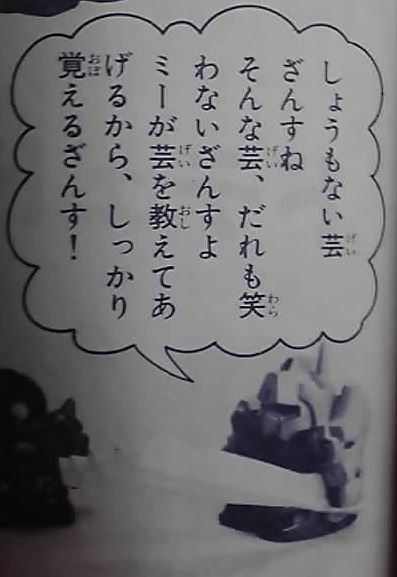 しょうもない芸
ざんすね
そんな芸、だれも笑
わないざんすよ
ミーが芸を教えてあ
げるから、しっかり
覚えるざんす！